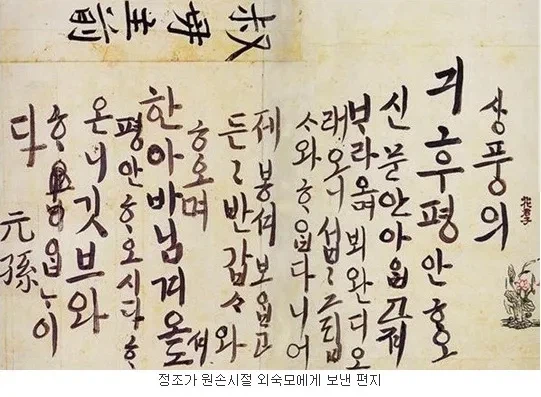 叔母主前
상풍의
긔후평안ᄒᆞ오
신문안아ᄋᆞᆸ고져
ᄇᆞ라오며뵈완디오
래오니섭〻그립
ᄉᆞ와ᄒᆞᄋᆞᆸ다니어
제봉셔보ᄋᆞᆸ고
든〻반갑ᄉᆞ와
ᄒᆞ오며
한아바님겨오셔도
평안ᄒᆞ오시다ᄒᆞ
온니깃브와
ᄒᆞᄋᆞᆸᄂᆞ이
다
元孫
정조가 원손시절 외숙모에게 보낸 편지